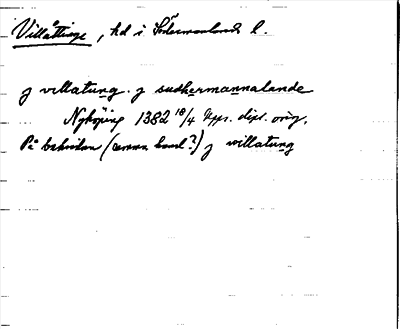 Villåttinge, hd i Södermanlands l.
J villatung. j sudhermannalande
Nyköping 1382 18/4 Kpps. dipl. orig.
På baksidan (annan hand?) J willatung